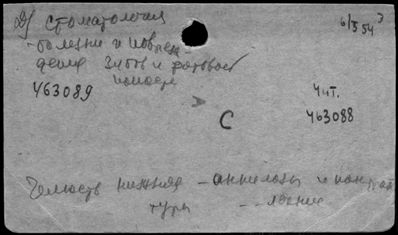 Д) стоматология 6/I 54
- болезни и повреж-
дения зубов и ротовой
полости
463089 Чит.
С 463088
Челюсть нижняя - анкилозы и контрак
туры - лечение